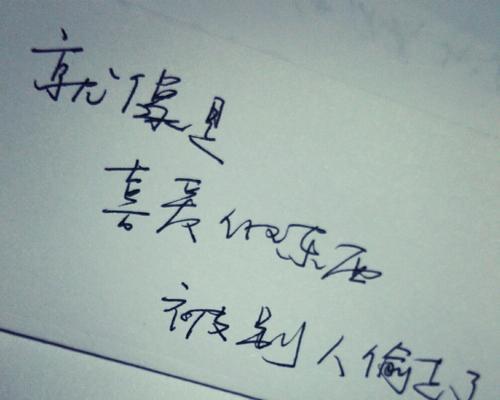 就像是
喜爱的东西
被别人偷去了